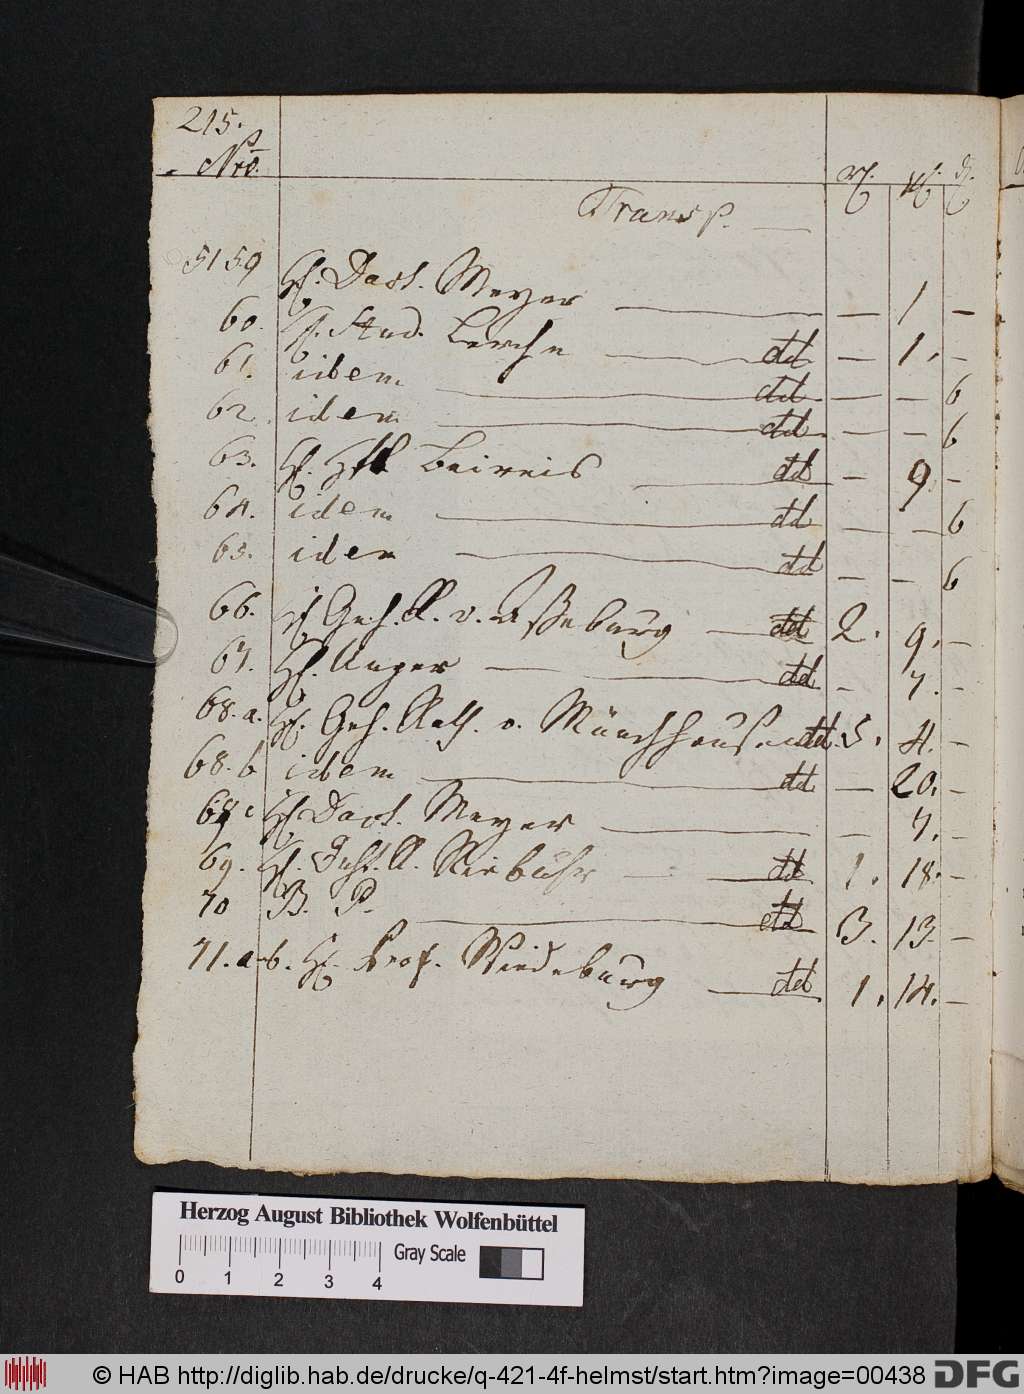 215.
Nro.
Transp.
5159 H. Past. Meyer — 1 —
60. H. Stud. Lerche dd — 1. —
61. idem dd — — 6
62. idem dd — — 6
63. H. Beireis dd — 9 —
64. idem dd — — 6
65. idem dd — — 6
66. H Geh. R. v. Asseburg dd 2. 9. —
67. H. Unger dd — 7. —
68.a. H. Geh. Rath. v. Münchhausen dd 5. 4. —
68.b idem dd — 20. —
68c H Past. Meyer — 7. —
69. H. R. Niebuhr dd 1. 18. —
70 B. P. dd 3. 13. —
71.a-b. H. Prof. Wiedeburg dd 1. 14. —
Herzog August Bibliothek Wolfenbüttel
0 1 2 3 4
Gray Scale
© HAB http://diglib.hab.de/drucke/q-421-4f-helmst/start.htm?image=00438
DFG